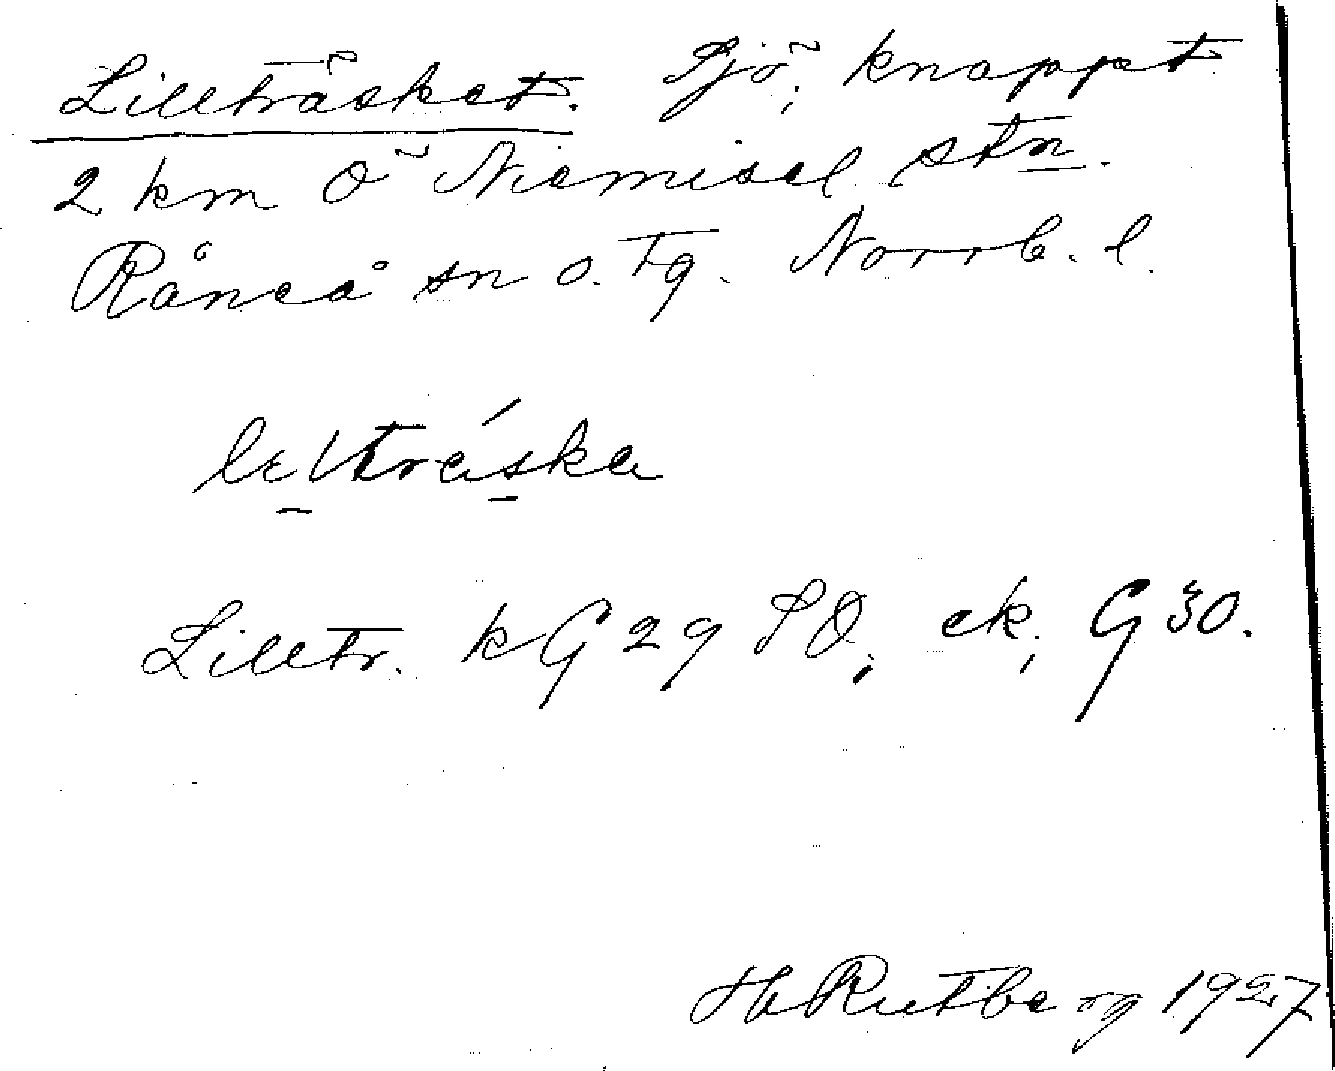 Lillträsket. Sjö; knappt
2 km Ö Niemisel stn.
Råneå sn o. tg. Norrb. l.
leltráska
Lilltr. kG 29 SO; ek; G 30.
H Rutberg 1927